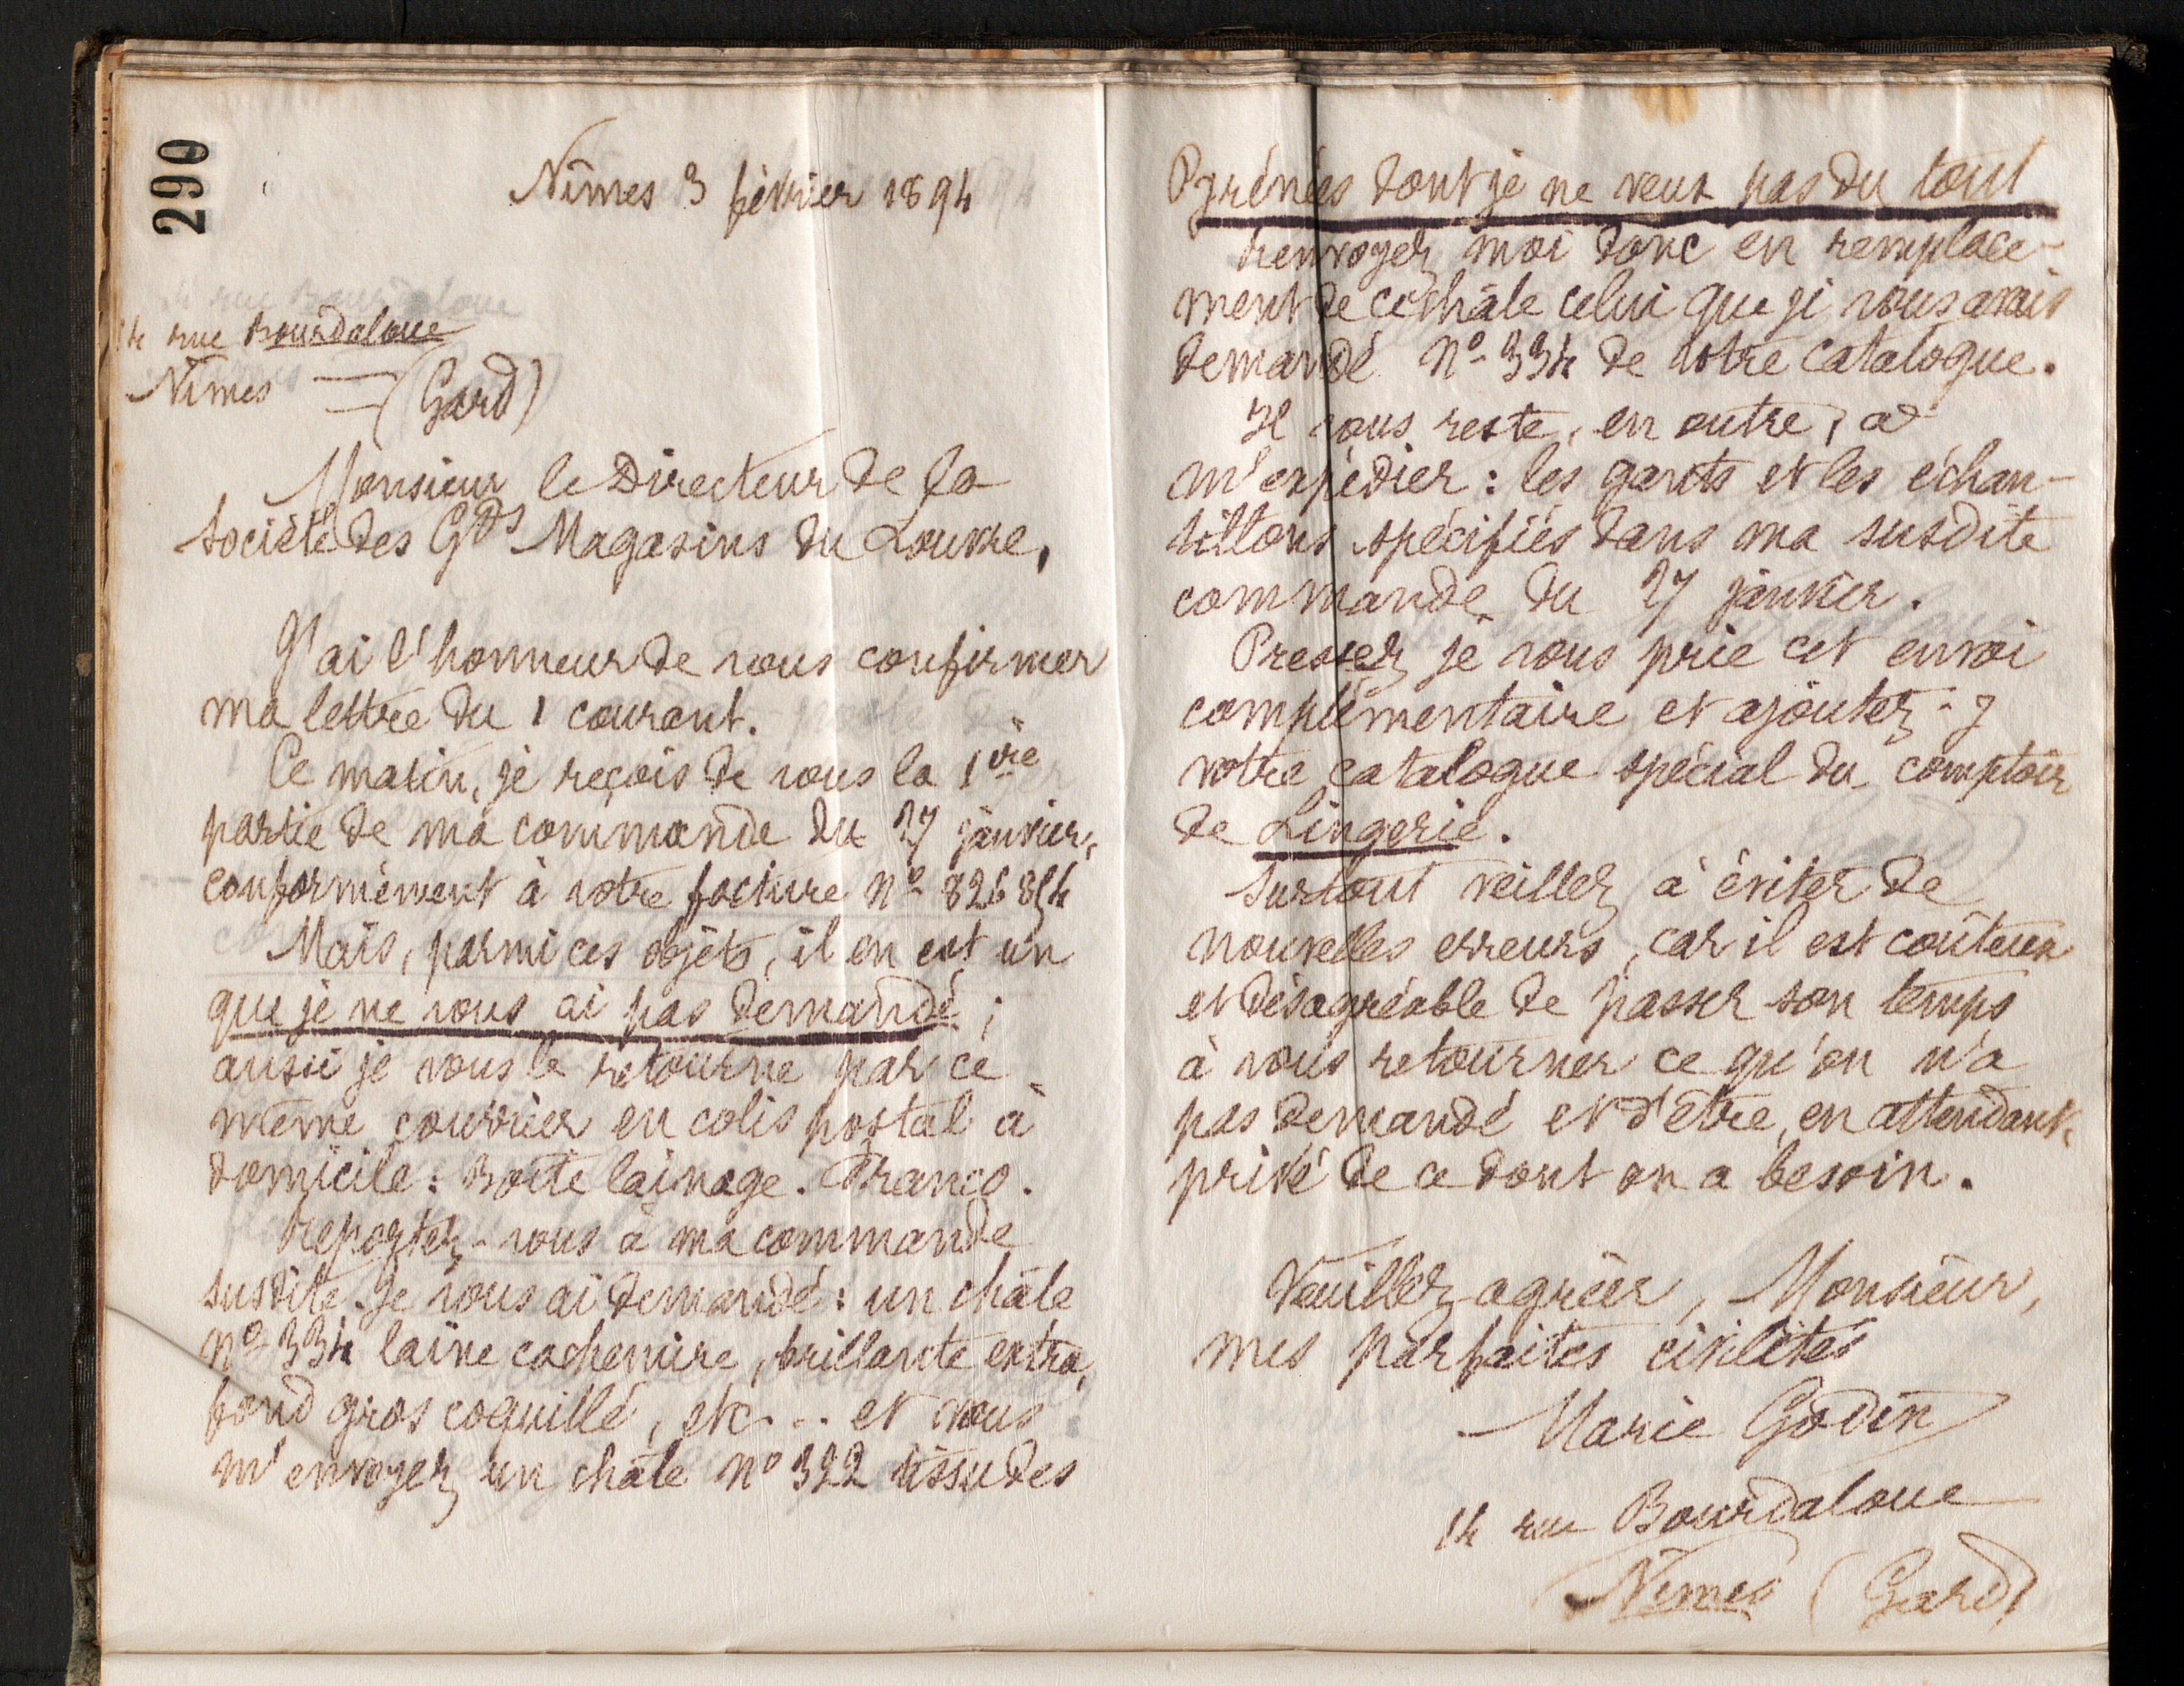 290
Nîmes 3 février 1894
14 rue Bourdaloue
Nîmes — (Gard)
Monsieur le Directeur de la
Société des Gds Magasins du Louvre,
J'ai l'honneur de vous confirmer
ma lettre du 1 courant.
Ce matin, je reçois de vous la 1ère
partie de ma commande du 27 janvier,
conformément à votre facture No
Mais, parmi ces objets, il en est un
que je ne vous ai pas demandé ;
aussi je vous le retourne par ce
même courrier en colis postal à
domicile : Boîte lainage. Franco.
Reportez-vous à ma commande
susdite. Je vous ai demandé : un châle
No 334 laine cachemire, brillante extra,
fond gros coquillé, etc... et vous
m'envoyez un châle No 322 tissu des
Pyrénées dont je ne veux pas du tout
Renvoyez moi donc en remplace-
ment de ce châle celui que je vous avais
demandé No 334 de votre catalogue.
Il vous reste, en outre, à
m'expédier : les gants et les échan-
tillons spécifiés dans ma susdite
commande du 27 janvier.
Pressez je vous prie cet envoi
complémentaire et ajoutez-y
votre catalogue spécial du comptoir
de Lingerie.
Surtout veillez à éviter de
nouvelles erreurs, car il est coûteux
et désagréable de passer son temps
à vous retourner ce qu'on n'a
pas demandé et d'être, en attendant,
privé de ce dont on a besoin.
Veuillez agréer, Monsieur,
mes parfaites civilités
Marie Godin
14 rue Bourdaloue
Nîmes (Gard)